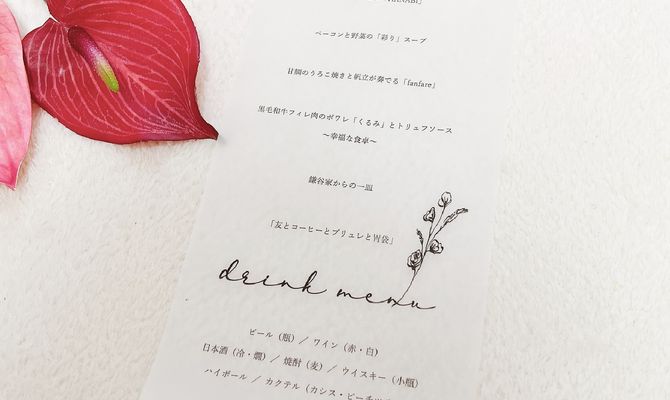 ベーコンと野菜の「彩り」スープ
甘鯛のうろこ焼きと帆立が奏でる「fanfare」
黒毛和牛フィレ肉のポワレ「くるみ」とトリュフソース
～幸福な食卓～
鎌谷家からの一皿
「友とコーヒーとブリュレと胃袋」
drink menu
ビール（瓶）／ ワイン（赤・白）
日本酒（冷・燗）／ 焼酎（麦）／ ウイスキー（小瓶）
ハイボール ／ カクテル（カシス・ピーチ